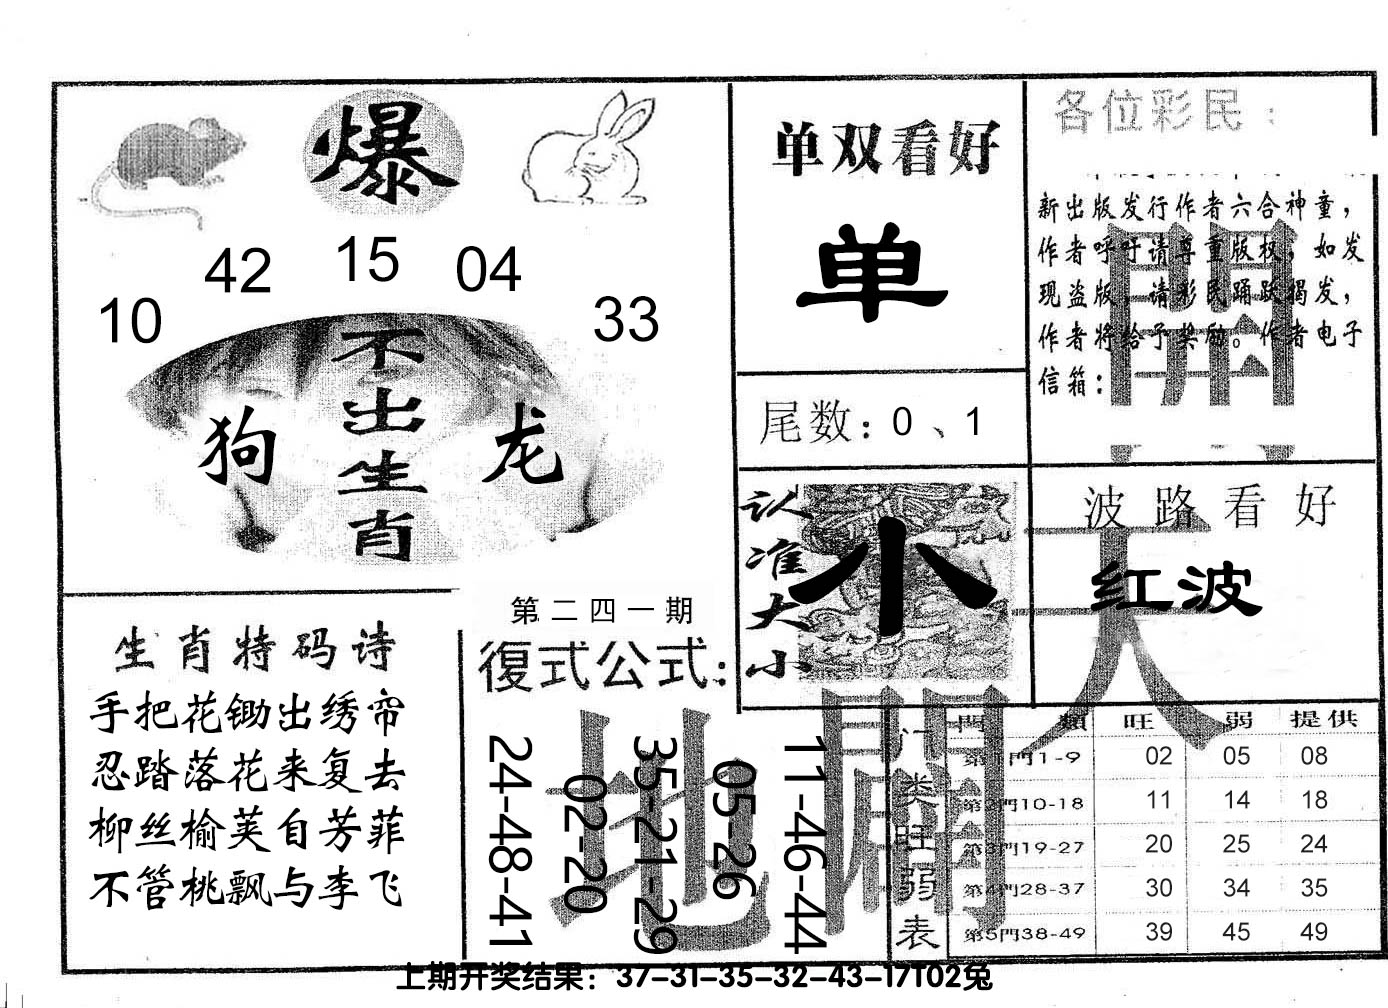 爆
10
42
15
04
33
不出生肖
狗
龙
单双看好
单
尾数：0、1
各位彩民：
新出版发行作者六合神童，
作者呼吁请尊重版权，如发
现盗版，请彩民踊跃揭发，
作者将给予奖励。作者电子
信箱：
開
认准大小
小
波路看好
红波
天
生肖特码诗
手把花锄出绣帘
忍踏落花来复去
柳丝榆荚自芳菲
不管桃飘与李飞
第二四一期
復式公式：
24-48-41
02-20
35-21-29
05-26
11-46-44
地
門类旺弱表
門類 旺 弱 提供
第1門1-9 02 05 08
第2門10-18 11 14 18
第3門19-27 20 25 24
第4門28-37 30 34 35
第5門38-49 39 45 49
上期开奖结果：37-31-35-32-43-17T02兔